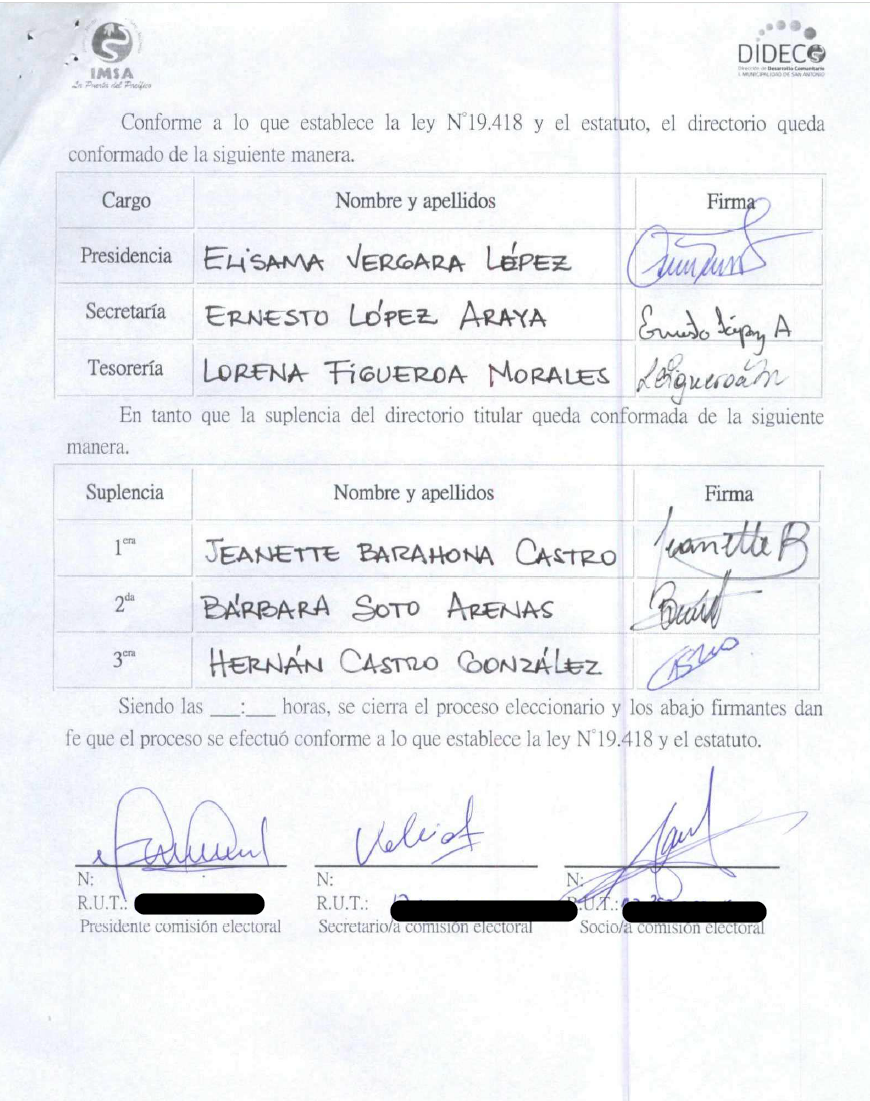 IMSA
La Puerta del Pacífico
DIDECO
Dirección de Desarrollo Comunitario
I. MUNICIPALIDAD DE SAN ANTONIO
Conforme a lo que establece la ley N°19.418 y el estatuto, el directorio queda
conformado de la siguiente manera.
Cargo Nombre y apellidos Firma
Presidencia ELISAMA VERGARA LÓPEZ
Secretaría ERNESTO LÓPEZ ARAYA Ernesto López A
Tesorería LORENA FIGUEROA MORALES LFigueroaM
En tanto que la suplencia del directorio titular queda conformada de la siguiente
manera.
Suplencia Nombre y apellidos Firma
1era JEANETTE BARAHONA CASTRO Jeanette B
2da BÁRBARA SOTO ARENAS
3era HERNÁN CASTRO GONZÁLEZ
Siendo las ___:___ horas, se cierra el proceso eleccionario y los abajo firmantes dan
fe que el proceso se efectuó conforme a lo que establece la ley N°19.418 y el estatuto.
N: N: N:
R.U.T.: R.U.T.: R.U.T.:
Presidente comisión electoral Secretario/a comisión electoral Socio/a comisión electoral